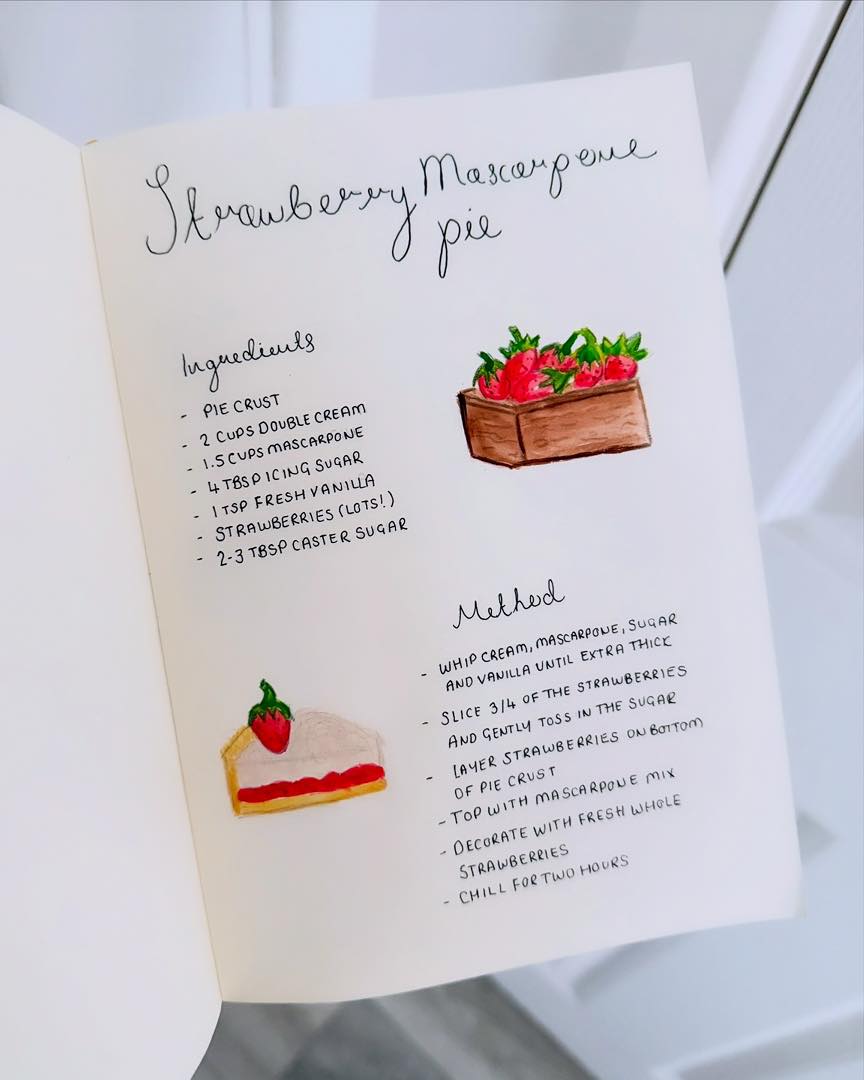 Strawberry Mascarpone
pie
Ingredients
- PIE CRUST
- 2 CUPS DOUBLE CREAM
- 1.5 CUPS MASCARPONE
- 4 TBSP ICING SUGAR
- 1 TSP FRESH VANILLA
- STRAWBERRIES (LOTS!)
- 2-3 TBSP CASTER SUGAR
Method
- WHIP CREAM, MASCARPONE, SUGAR
AND VANILLA UNTIL EXTRA THICK
- SLICE 3/4 OF THE STRAWBERRIES
AND GENTLY TOSS IN THE SUGAR
- LAYER STRAWBERRIES ON BOTTOM
OF PIE CRUST
- TOP WITH MASCARPONE MIX
- DECORATE WITH FRESH WHOLE
STRAWBERRIES
- CHILL FOR TWO HOURS